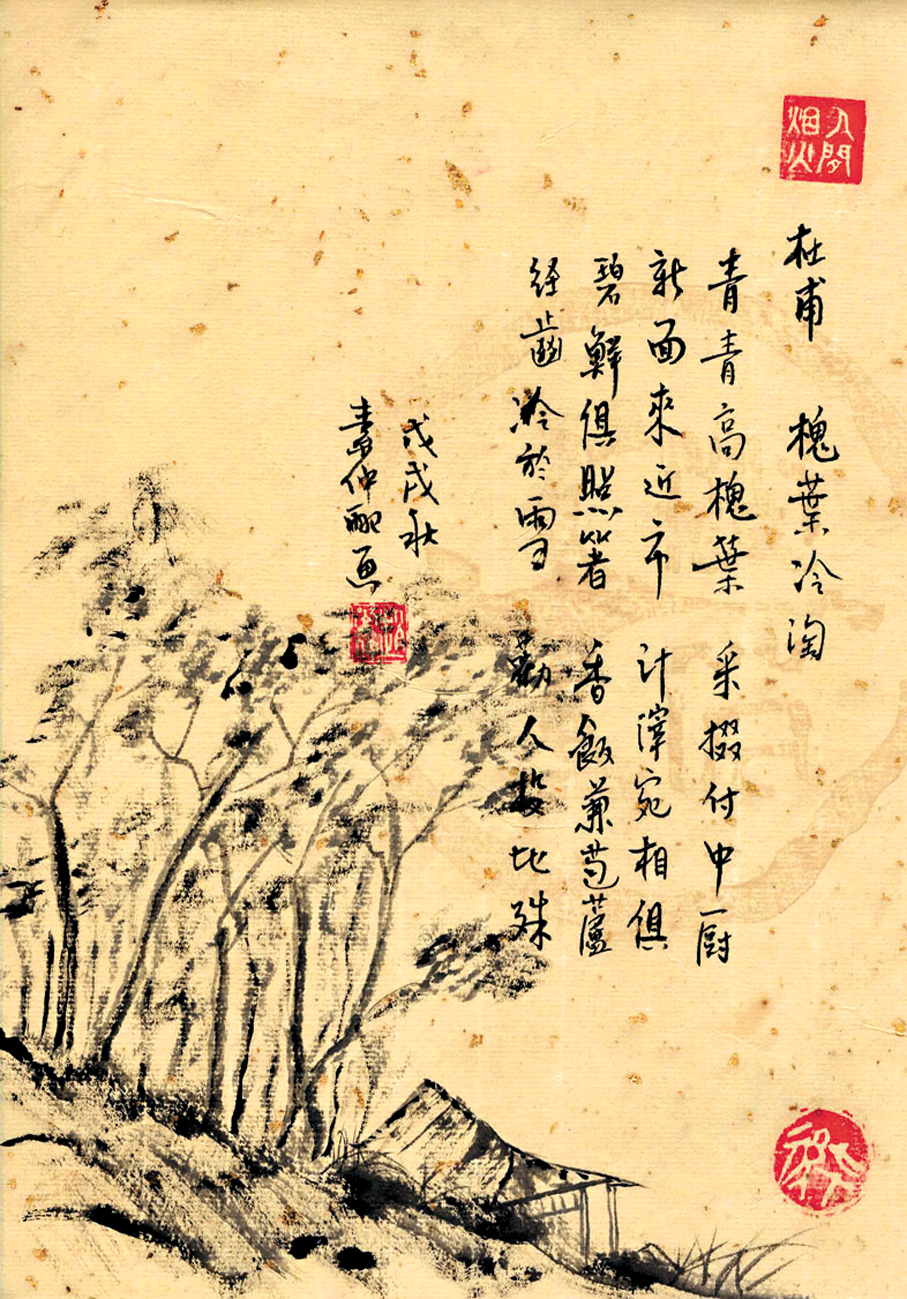 人间烟火
杜甫 槐葉冷淘
青青高槐葉 采掇付中厨
新面來近市 汁滓宛相俱
碧鮮俱照箸 香飯兼苞蘆
经齒冷於雪 勸人投比珠
戊戌秋
素仲配画